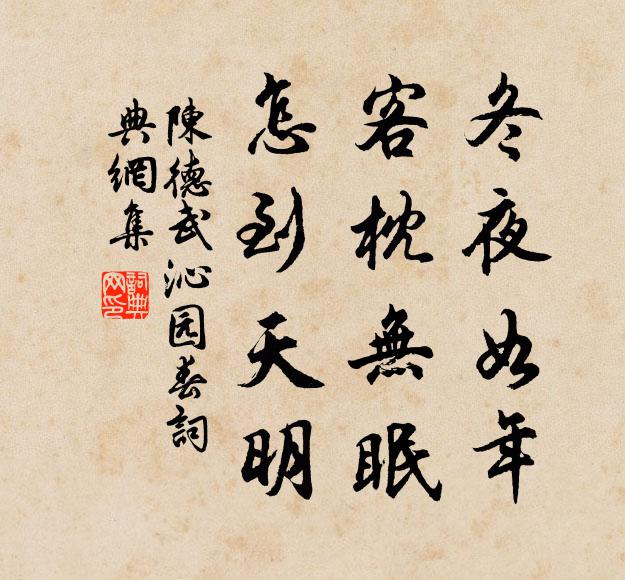 冬夜如年
客枕無眠
怎到天明
陳德武沁园春詞
典網集
詞典网印